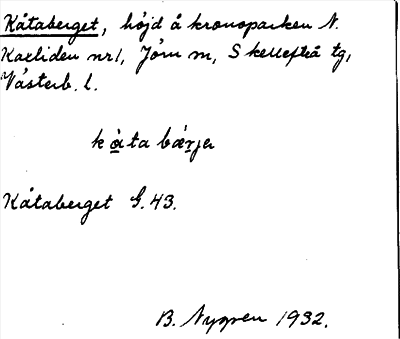 Kåtaberget, höjd å kronoparken N.
Kaxliden nr 1, Jörn sn, Skellefteå tg,
Västerb. l.
kåta bærjer
Kåtaberget G. 43.
B. Nygren 1932.